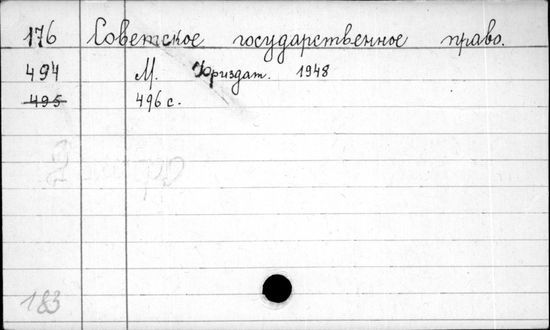 176 Советское государственное право.
494 М. Юриздат. 1948
495 496 с.
183